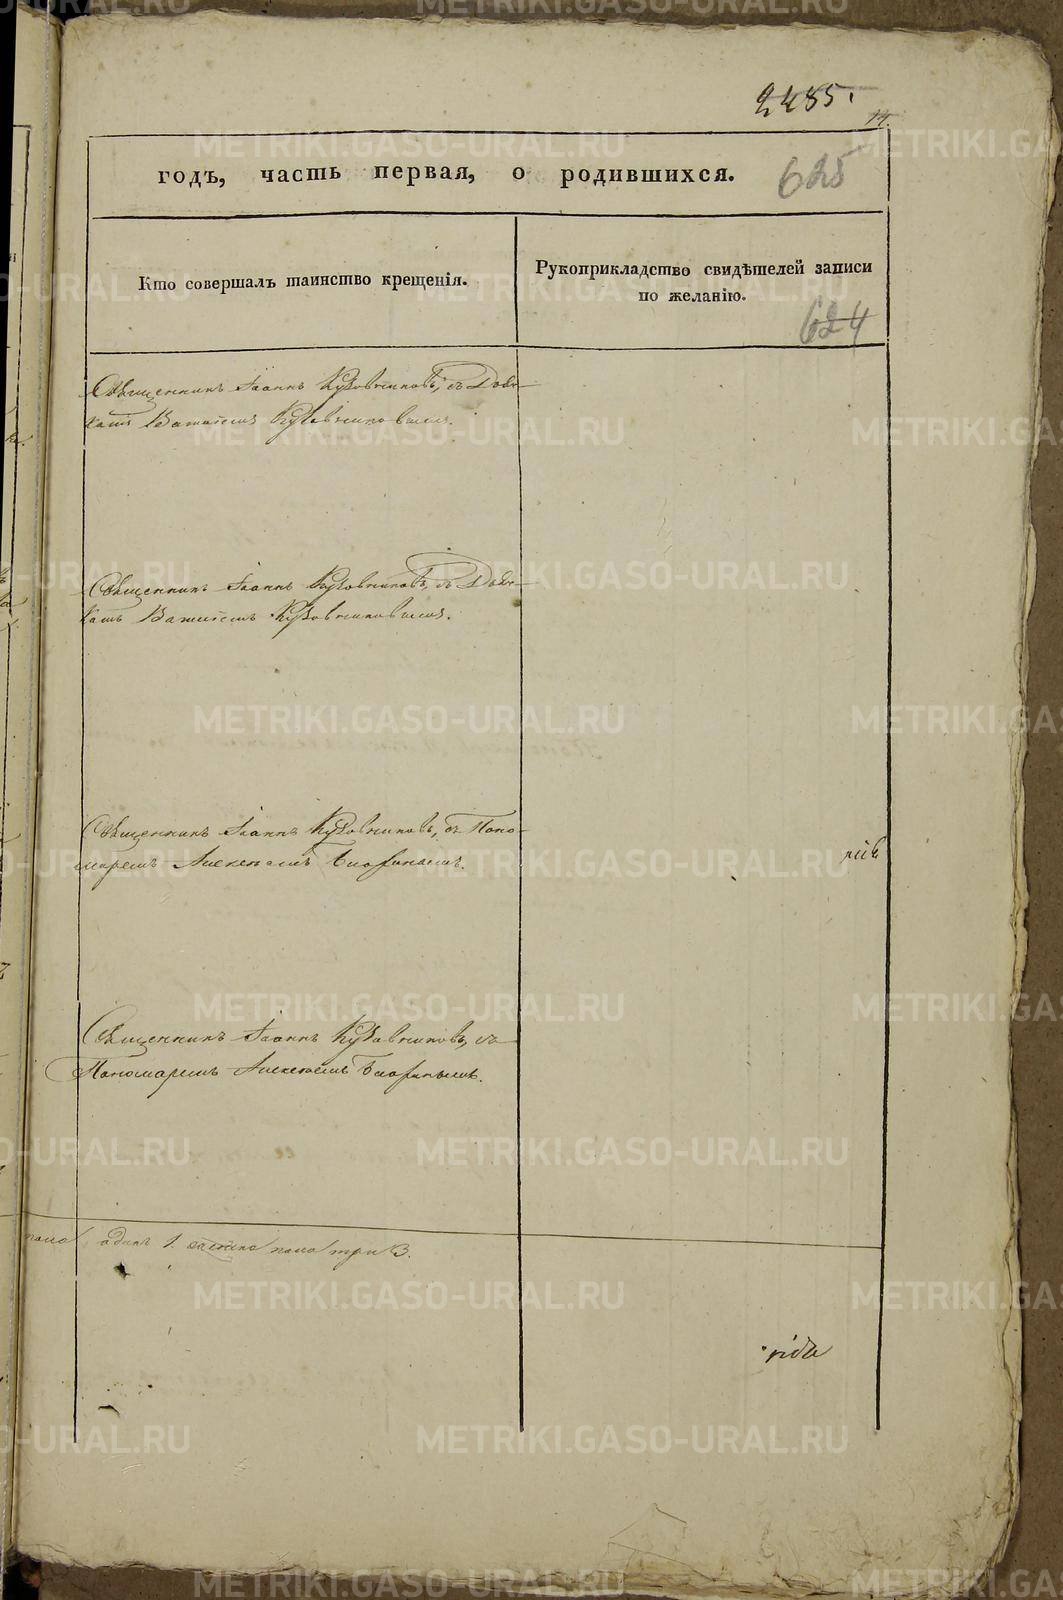 2485.
14.
годъ, часть первая, о родившихся.
625
Кто совершалъ таинство крещенія.
Рукоприкладство свидѣтелей записи
по желанію.
624
Священникъ Іоаннъ Кузовниковъ, съ
Кузовниковымъ.
Священникъ Іоаннъ Кузовниковъ, съ
Кузовниковымъ.
Священникъ Іоаннъ Кузовниковъ, съ Поно-
маремъ Алексѣемъ
Священникъ Іоаннъ Кузовниковъ, съ
Пономаремъ Алексѣемъ
пола одинъ 1. женска пола три 3.
METRIKI.GASO-URAL.RU